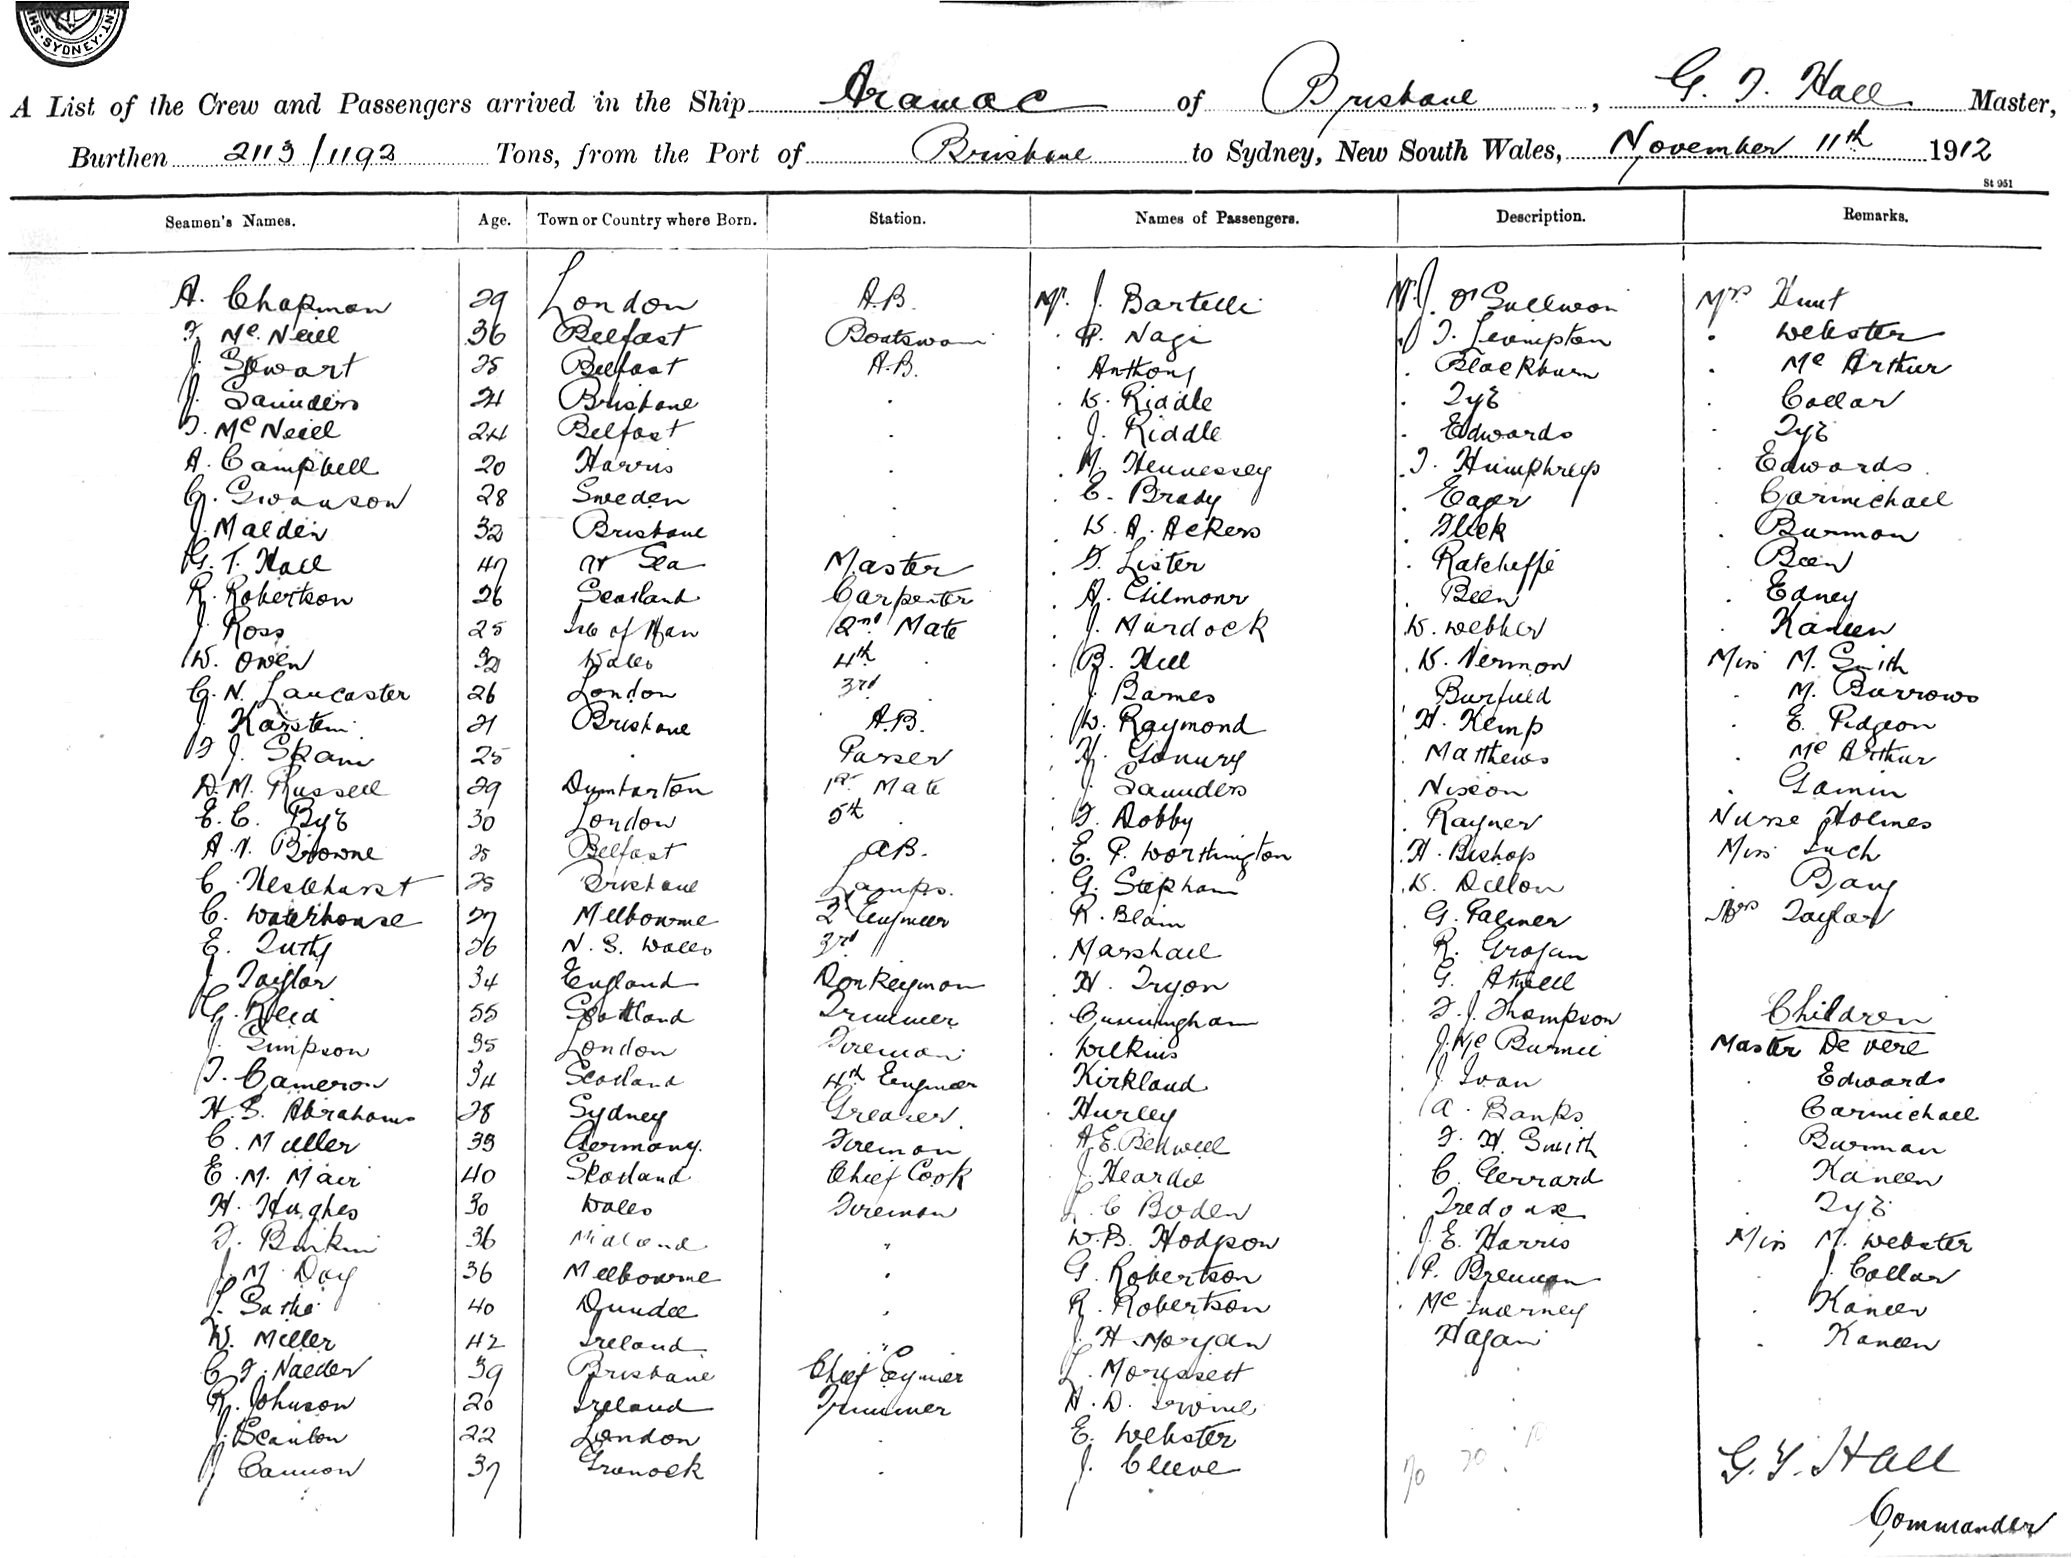 SYDNEY
A List of the Crew and Passengers arrived in the Ship Aramac of Brisbane, G. T. Hall Master,
Burthen 2113/1192 Tons, from the Port of Brisbane to Sydney, New South Wales, November 11th 1912
St 951
Seamen's Names. Age. Town or Country where Born. Station. Names of Passengers. Description. Remarks.
A. Chapman 29 London A.B. Mr. J. Bartelli Mr. J. O'Sullivan Mrs Hunt
T. McNeill 36 Belfast Boatswain P. Nagi T. Levington Webster
J. Stewart 25 Belfast A.B. Anthony Blackburn McArthur
J. Saunders 21 Brisbane . W. Riddle Tye Collar
T. McNeill 24 Belfast . J. Riddle Edwards Tye
A. Campbell 20 Harris . M. Hennessey T. Humphreys Edwards
G. Swanson 28 Sweden . C. Brady Eager Carmichael
J. Malden 32 Brisbane . W. A. Ackers Fleek Burman
G. T. Hall 47 At Sea Master T. Lister Ratcheffe Been
R. Robertson 26 Scotland Carpenter A. Gilmour Been Edney
J. Ross 25 Isle of Man 2nd Mate J. Murdock W. Webber Kaneen
W. Owen 32 Wales 4th . B. Hill W. Vernon Miss M. Smith
G. N. Lancaster 26 London 3rd . J. Barnes Burfield . M. Burrows
J. Karstein 21 Brisbane A.B. W. Raymond H. Kemp . E. Pidgeon
T. J. Skain 25 . Purser H. Matthews . McArthur
D. M. Russell 29 Dumbarton 1st Mate J. Saunders Nixon . Gamin
E. C. Bye 30 London 5th . T. Dobby Rayner Nurse Holmes
A. V. Browne 25 Belfast A.B. E. P. Worthington H. Bishop Miss Such
C. Heslehurst 25 Brisbane Lamps. G. Stephan W. Dillon . Bang
C. Waterhouse 27 Melbourne 2 Engineer R. Blain G. Palmer Mrs Taylor
E. Tuthy 26 N. S. Wales 3rd Marshall R. Grogan
J. Taylor 34 England Donkeyman H. Tryon G. Atwell
G. Reid 55 Scotland Trimmer Cunningham T. J. Thompson Children
J. Simpson 35 London Fireman Wilkins J. McBurnie Master De Vere
T. Cameron 34 Scotland 4th Engineer Kirkland J. Ivan . Edwards
H. S. Abrahams 28 Sydney Greaser. Hurley A. Banks . Carmichael
C. Muller 33 Germany. Fireman A. E. Bedwell T. H. Smith . Burman
E. M. Mair 40 Scotland Chief Cook J. Heardie C. Gerrard . Kaneen
H. Hughes 30 Wales Fireman L. C. Boden Tredoux . Tye
T. 36 " W. B. Hodgson J. E. Harris Miss M. Webster
J. M. Day 36 Melbourne . G. Robertson P. Brennan . J. Collar
L. 40 Dundee . R. Robertson McInerney . Kaneen
W. Miller 42 Ireland " J. H. Morgan Hagan . Kaneen
C. F. Naeder 39 Brisbane Chief Engineer L. Morissett
R. Johnson 20 Ireland Trimmer H. D. Irvine
J. Scanlon 22 London . E. Webster
J. Cannon 37 Greenock . J. Cleeve 70 70
G. T. Hall
Commander